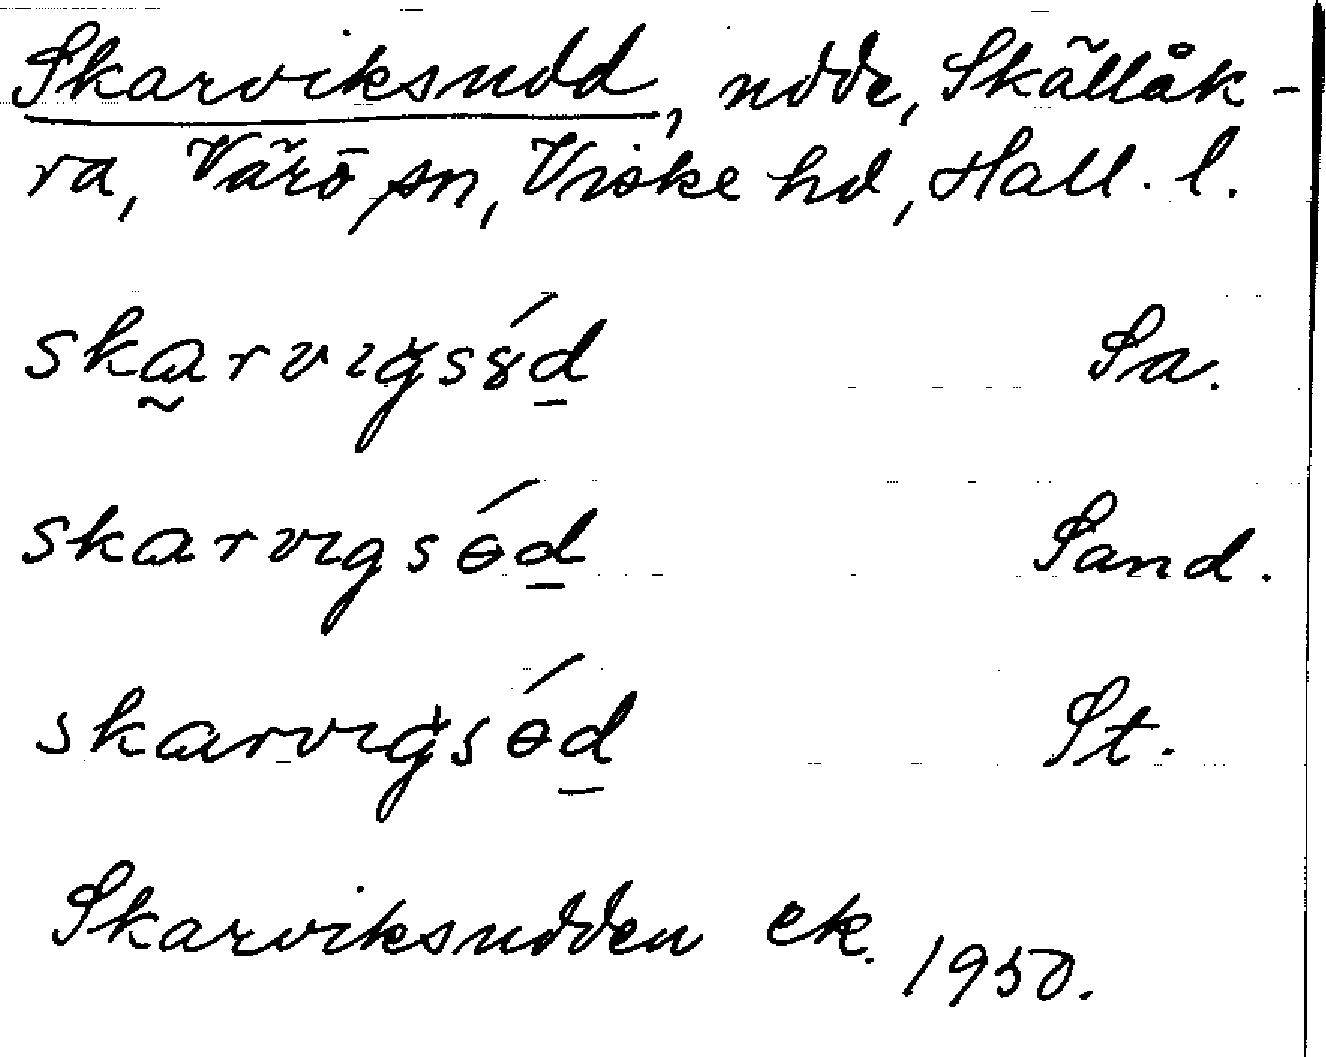 Skarviksudd, udde, Skällåk-
ra, Värö sn, Viske hd, Hall. l.
skarvıgsód Sa.
skarvıgsód Sand.
skarvıgsód St.
Skarviksudden ek. 1950.